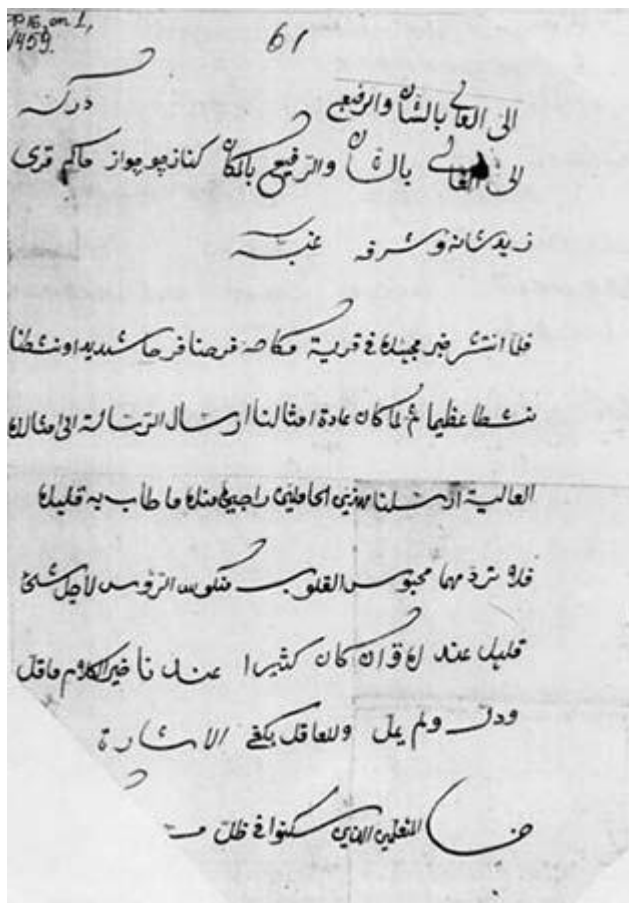 61
459
الى العالى بالشان والرفيع
الى العالى بالشان والرفيع بالمكان كنازچوپواز حاكم قرى
زيد شانه وشرفه غبه
فلما انتشر خبر مجيئك فى قرية فرحنا فرحا شديدا ونشطنا
نشطا عظيما ثم لما كان عادة امثالنا ارسال الرسالة الى امثالك
العالية ارسلنا هذين الحاملين راجيا منك ما طاب به قلبك
فلا تردهما محبوس القلوب منكوس الرؤس لاجل شئ
قليل عندك وان كان كثيرا عندنا خير الكلام ما قل
ودل ولم يمل وللعاقل يكفى الاشارة
من المتعلمين الذين سكنوا فى